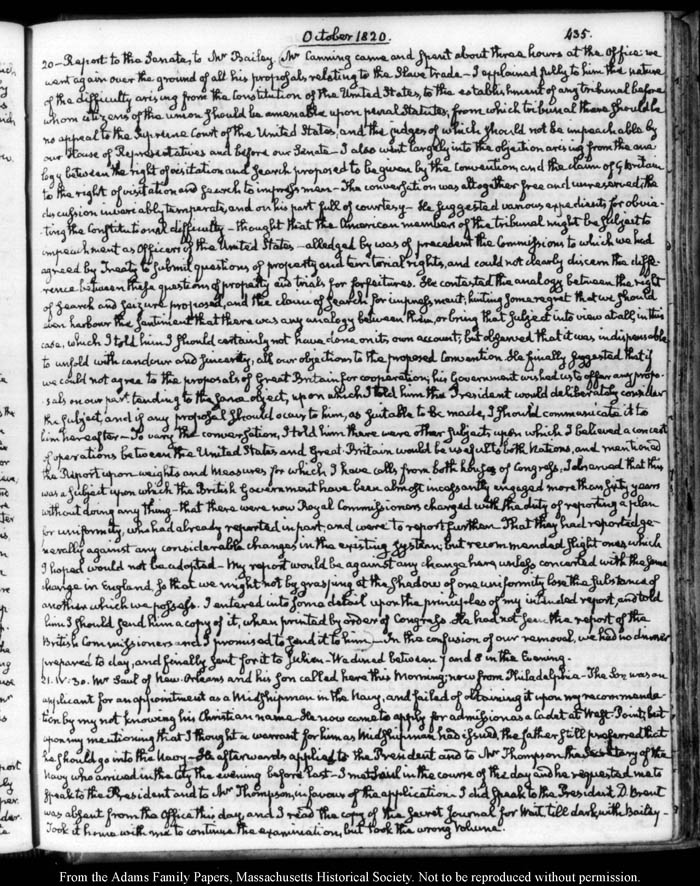 October 1820. 435.
20 - Report to the Senate, to Mr Bailey. Mr Canning came and spent about three hours at the Office: we
went again over the ground of all his proposals relating to the Slave trade - I explained fully to him the nature
of the difficulty arising from the Constitution of the United States, to the establishment of any tribunal before
whom citizens of the union should be amenable upon penal Statutes, from which tribunal there should be
no appeal to the Supreme Court of the United States, and the judges of which should not be impeachable by
our House of Representatives and before our Senate - I also went largely into the objection arising from the ana
logy between the right of visitation and search proposed to be given by the Convention, and the claim of G. Britain
to the right of visitation and search to impress men - The conversation was altogether free and unreserved, the
discussion invariably temperate, and on his part full of courtesy - He suggested various expedients for obvia-
ting the Constitutional difficulty - thought that the American member of the tribunal might be subject to
impeachment as Officers of the United States - alledged by way of precedent the Commissions to which we had
agreed by Treaty to submit questions of property and territorial rights, and could not clearly discern the diffe-
rence between these questions of property and trials for forfeitures. He contested the analogy between the right
of search and seizure proposed, and the claim of search for impressment, hinting some regret that we should
even harbour the sentiment that there was any analogy between them, or bring that subject into view at all, in this
case, which I told him I should certainly not have done, on its own account, but observed that it was indispensable
to unfold with candour and sincerity, all our objections to the proposed Convention. He finally suggested that if
we could not agree to the proposals of Great Britain for cooperation, his Government wished us to offer any propo-
sals on our part tending to the same object, upon which I told him the President would deliberately consider
the subject, and if any proposal should occur to him, as suitable to be made, I should communicate it to
him hereafter - To vary the conversation, I told him there were other subjects upon which I believed a concert
of operations between the United States and Great Britain would be useful to both Nations, and mentioned
the Report upon weights and Measures for which I have calls from both houses of Congress. I observed that this
was a subject upon which the British Government have been almost incessantly engaged more than sixty years
without doing any thing - that there were now Royal Commissioners charged with the duty of reporting a plan
for uniformity, who had already reported in part, and were to report further. That they had reported ge-
nerally against any considerable changes in the existing system; but recommended slight ones, which
I hoped would not be adopted - My report would be against any change here, unless concerted with the same
change in England, so that we might not by grasping at the shadow of one uniformity lose the substance of
another which we possess. I entered into some detail upon the principles of my intended report, and told
him I should send him a copy of it, when printed by order of Congress. He had not seen the report of the
British Commissioners and I promised to send it to him - In the confusion of our removal, we had no dinner
prepared to day, and finally sent for it to Julien. We dined between 7 and 8 in the Evening.
21. IV:30. Mr Saul of New Orleans and his Son called here this Morning; now from Philadelphia - The Son was an
applicant for an appointment as a Midshipman in the Navy, and failed of obtaining it upon my recommenda-
tion by my not knowing his Christian name. He now came to apply for admission as a Cadet at West-Point; but
upon my mentioning that I thought a warrant for him as Midshipman had issued, the father still preferred that
he should go into the Navy - He afterwards applied to the President and to Mr Thompson the Secretary of the
Navy who arrived in the City the evening before last - I met Saul in the course of the day and he requested me to
speak to the President and to Mr Thompson, in favour of the application. I did speak to the President. D. Brent
was absent from the Office this day, and I read the copy of the Secret Journal for Wait till dark, with Bailey -
Took it home with me to continue the examination, but took the wrong Volume.
From the Adams Family Papers, Massachusetts Historical Society. Not to be reproduced without permission.